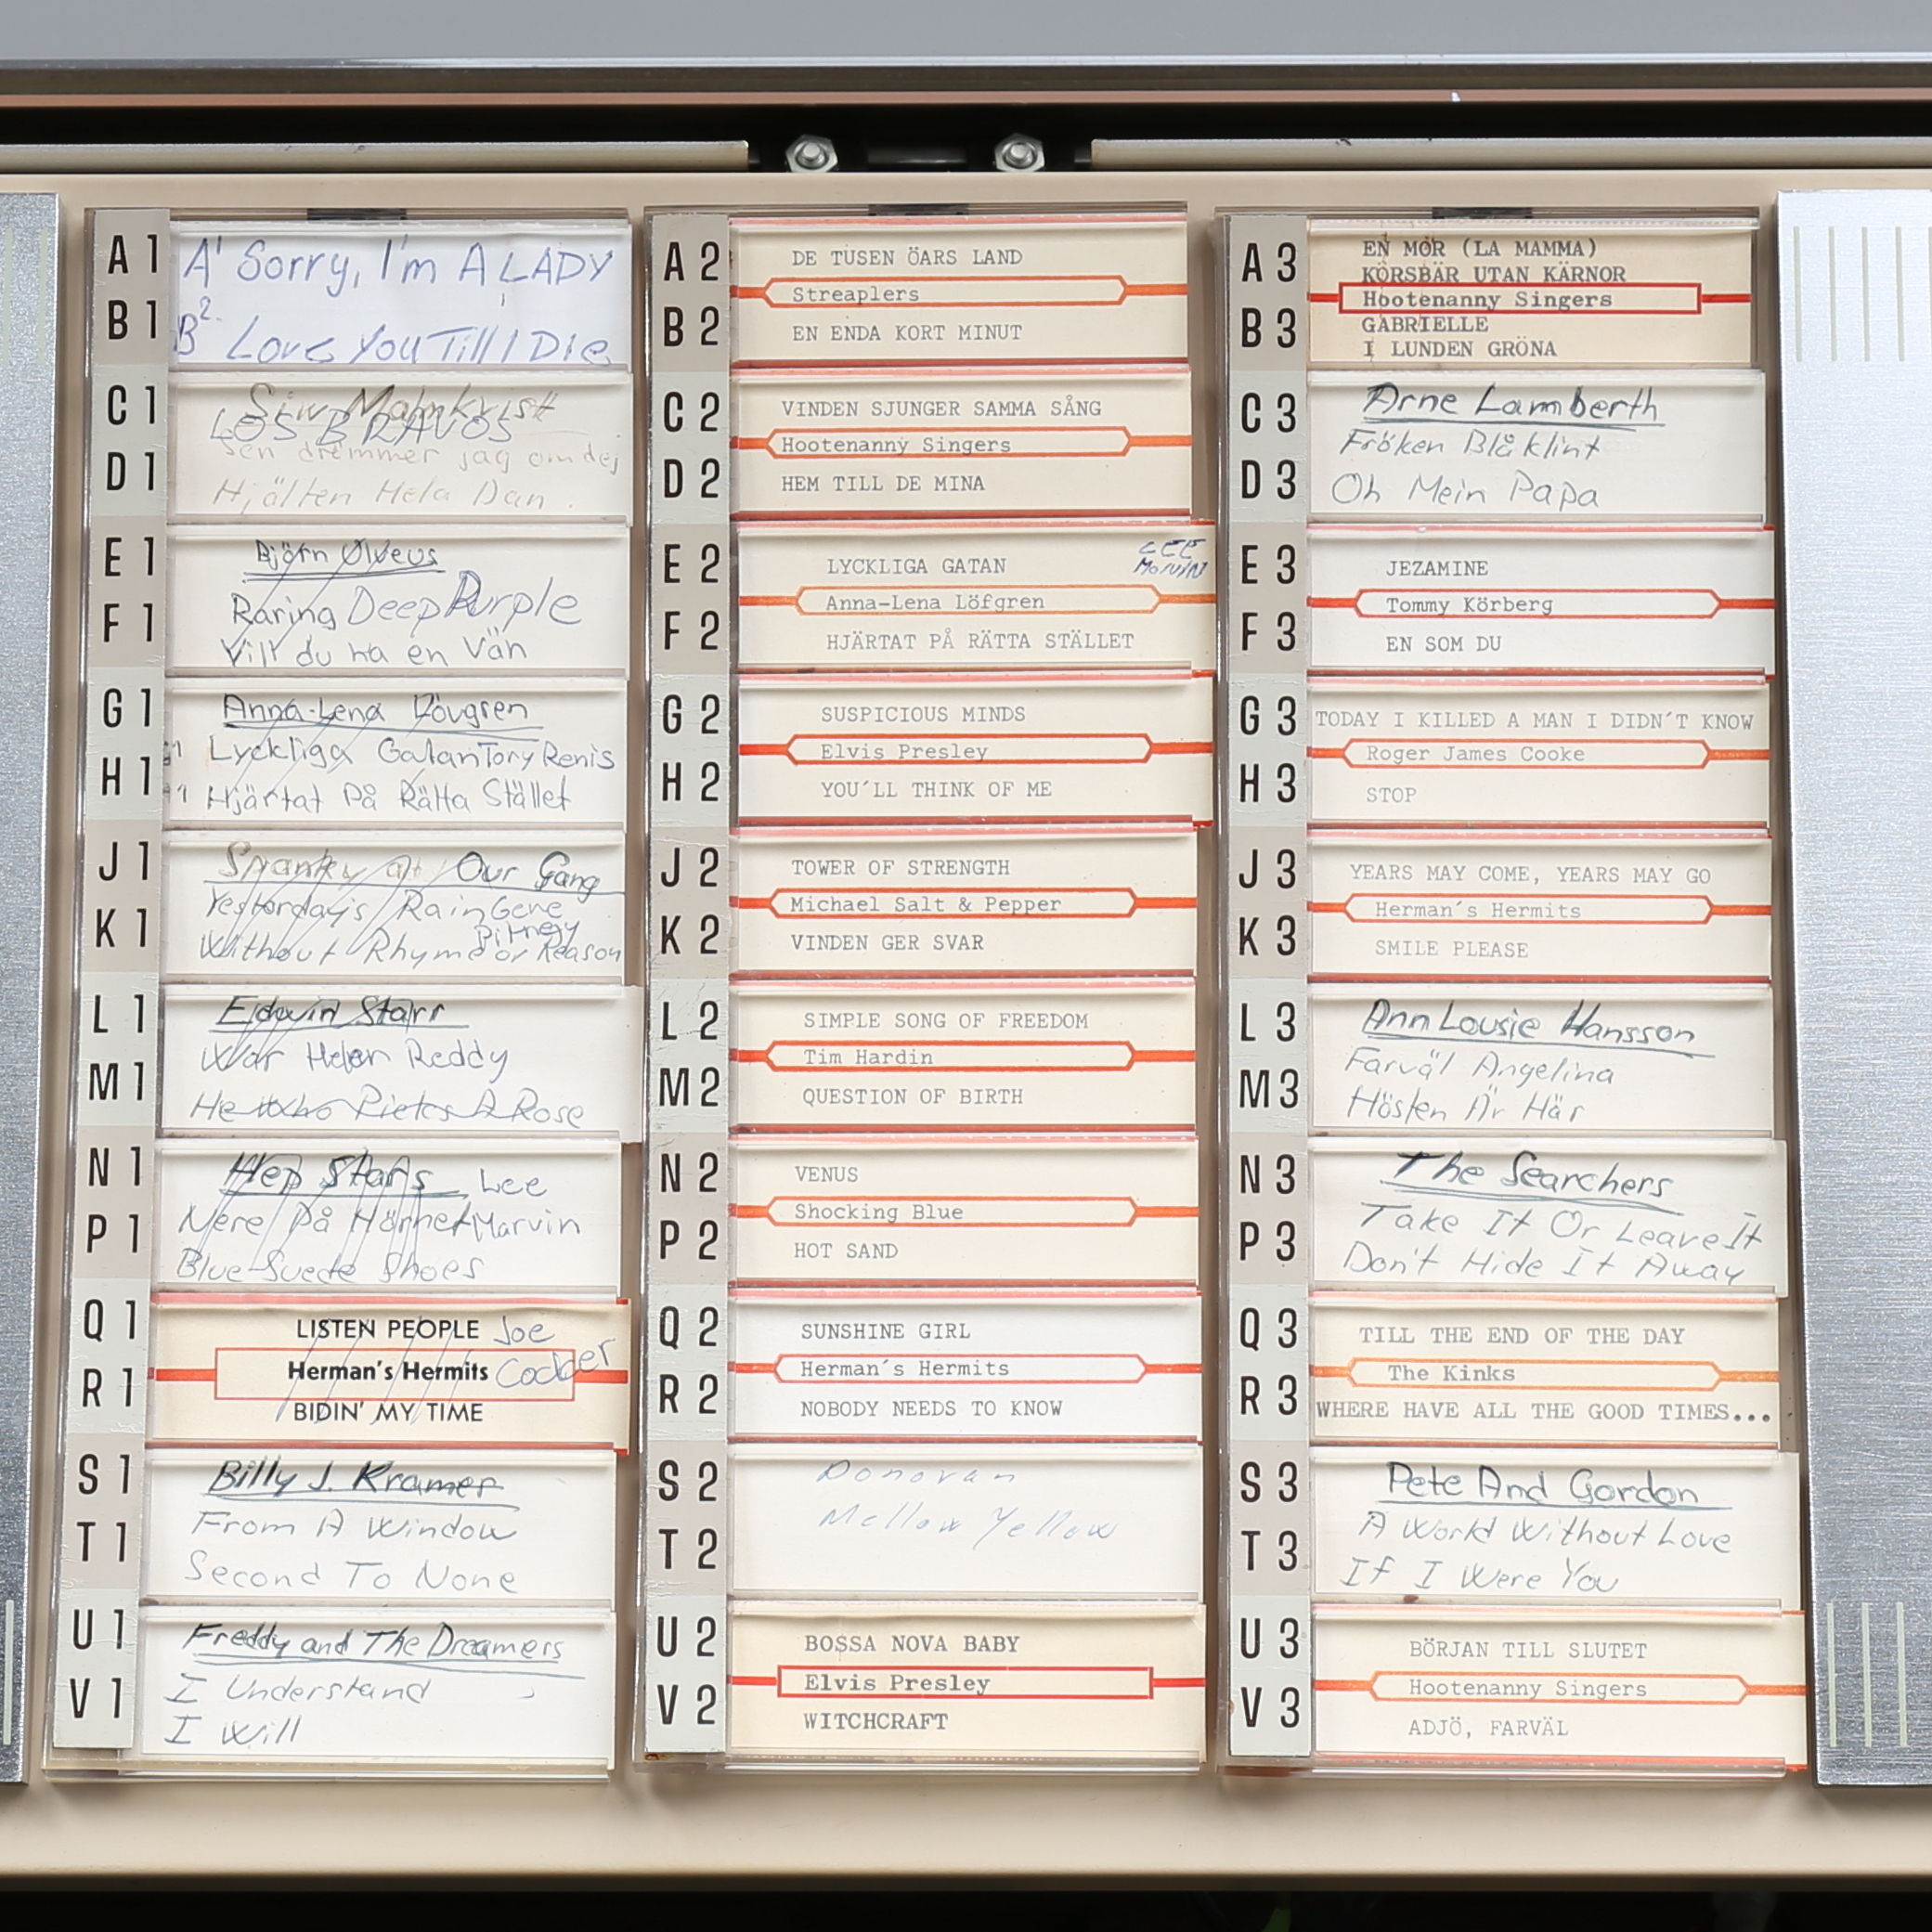 A 1
B 1
A1 Sorry, I'm A LADY
B2. Love You Till I Die
C 1
D 1
Siw Malmkvist
LOS BRAVOS
Sen drömmer jag om dej
Hjälten Hela Dan.
E 1
F 1
Björn Ulveus
Raring Deep Purple
Vill du ha en Vän
G 1
H 1
Anna-Lena Lövgren
Lyckliga Gatan Tory Renis
Hjärtat På Rätta Stället
J 1
K 1
Spanky Our Gang
Yesterday's Rain Gene
Pitney
Without Rhyme or Reason
L 1
M 1
Edwin Starr
War Helen Reddy
He Who Picks A Rose
N 1
P 1
Hep Stars Lee
Nere På Hörnet Marvin
Blue Suede Shoes
Q 1
R 1
LISTEN PEOPLE Joe
Herman's Hermits Cocker
BIDIN' MY TIME
S 1
T 1
Billy J. Kramer
From A Window
Second To None
U 1
V 1
Freddy and The Dreamers
I Understand
I Will
A 2
B 2
DE TUSEN ÖARS LAND
Streaplers
EN ENDA KORT MINUT
C 2
D 2
VINDEN SJUNGER SAMMA SÅNG
Hootenanny Singers
HEM TILL DE MINA
E 2
F 2
LYCKLIGA GATAN
LEE
Marvin
Anna-Lena Löfgren
HJÄRTAT PÅ RÄTTA STÄLLET
G 2
H 2
SUSPICIOUS MINDS
Elvis Presley
YOU'LL THINK OF ME
J 2
K 2
TOWER OF STRENGTH
Michael Salt & Pepper
VINDEN GER SVAR
L 2
M 2
SIMPLE SONG OF FREEDOM
Tim Hardin
QUESTION OF BIRTH
N 2
P 2
VENUS
Shocking Blue
HOT SAND
Q 2
R 2
SUNSHINE GIRL
Herman's Hermits
NOBODY NEEDS TO KNOW
S 2
T 2
Donovan
Mellow Yellow
U 2
V 2
BOSSA NOVA BABY
Elvis Presley
WITCHCRAFT
A 3
B 3
EN MOR (LA MAMMA)
KÖRSBÄR UTAN KÄRNOR
Hootenanny Singers
GABRIELLE
I LUNDEN GRÖNA
C 3
D 3
Arne Lamberth
Fröken Blåklint
Oh Mein Papa
E 3
F 3
JEZAMINE
Tommy Körberg
EN SOM DU
G 3
H 3
TODAY I KILLED A MAN I DIDN'T KNOW
Roger James Cooke
STOP
J 3
K 3
YEARS MAY COME, YEARS MAY GO
Herman's Hermits
SMILE PLEASE
L 3
M 3
Ann Lousie Hansson
Farväl Angelina
Hösten Är Här
N 3
P 3
The Searchers
Take It Or Leave It
Don't Hide It Away
Q 3
R 3
TILL THE END OF THE DAY
The Kinks
WHERE HAVE ALL THE GOOD TIMES...
S 3
T 3
Pete And Gordon
A World Without Love
If I Were You
U 3
V 3
BÖRJAN TILL SLUTET
Hootenanny Singers
ADJÖ, FARVÄL